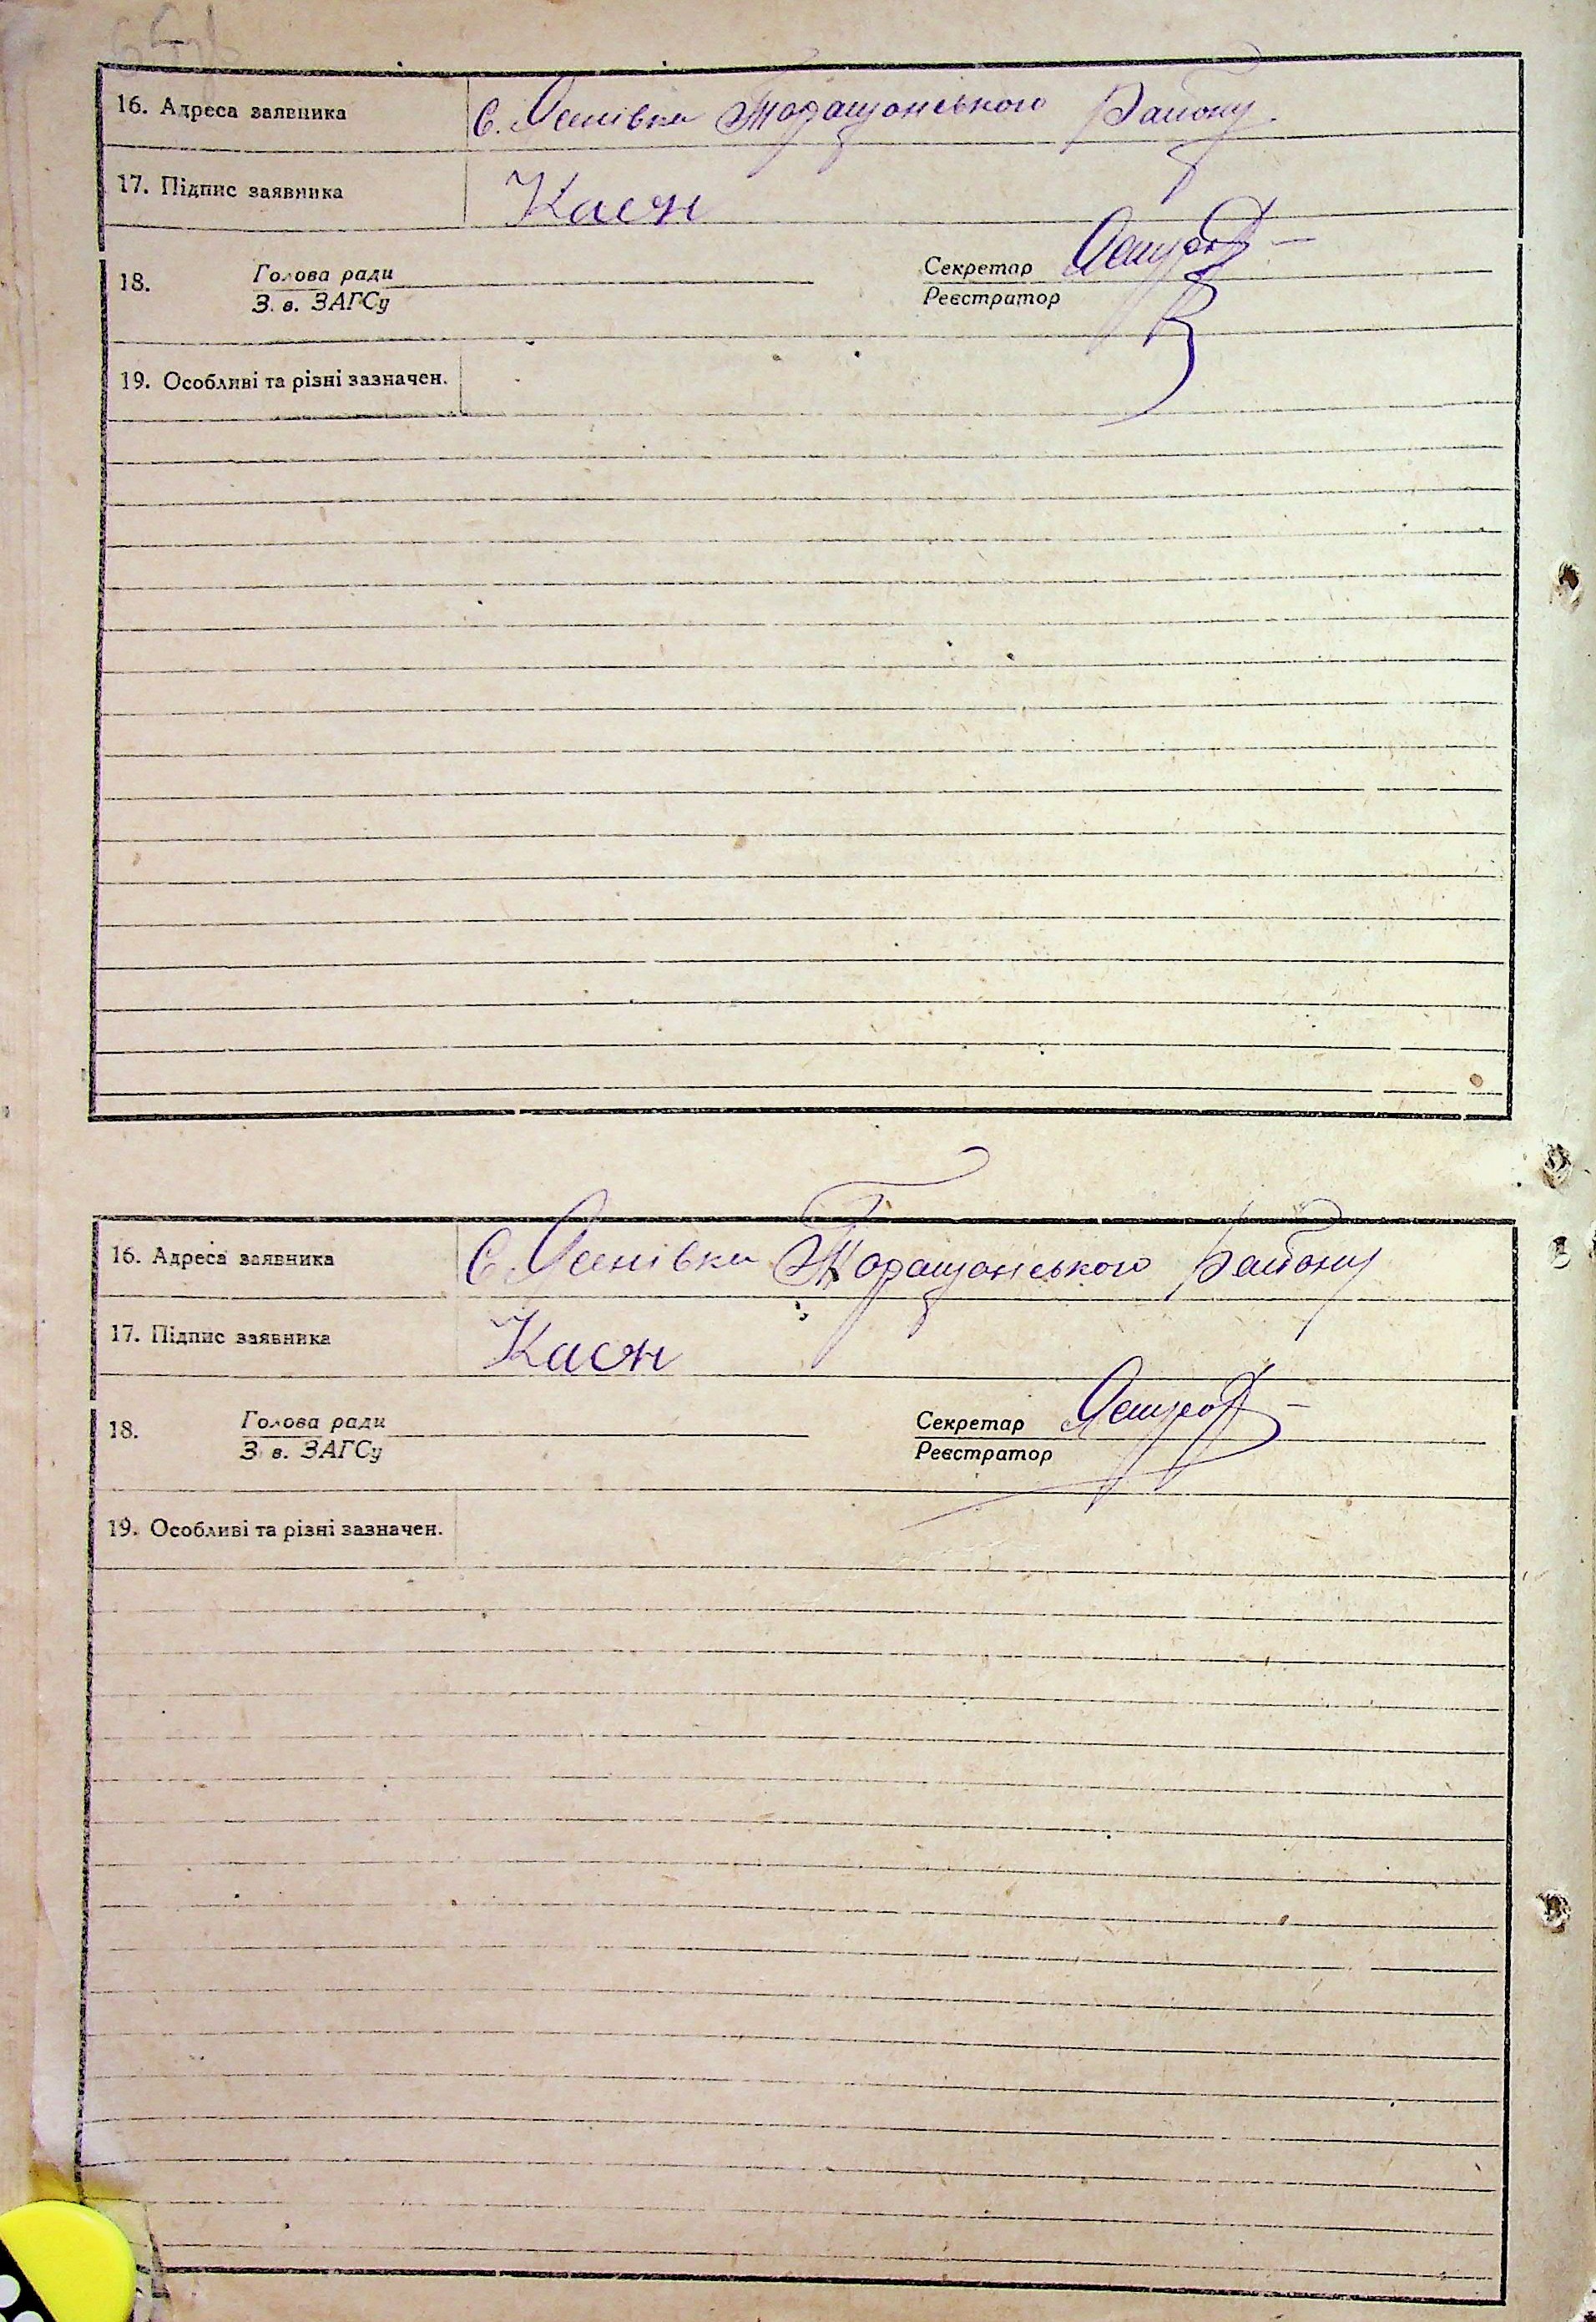 16. Адреса заявника С. Лимівка Таращанського Району.
17. Підпис заявника Касян
18. Голова ради Секретар
З. в. ЗАГСу Реєстратор
19. Особливі та різні зазначен.
16. Адреса заявника С. Таращанського Району
17. Підпис заявника
18. Голова ради Секретар
З. в. ЗАГСу Реєстратор
19. Особливі та різні зазначен.